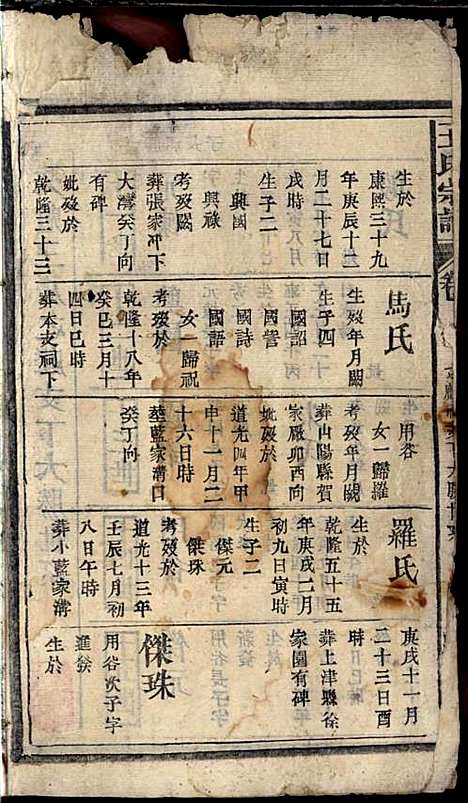 王氏宗譜
卷
生於
康熙三十九
年庚辰十二
月二十七日
戌時
生子二
興國
興祿
考歿闕
葬張家冲下
大灣癸丁向
有碑
妣歿於
乾隆三十三
馬氏
生歿年月闕
生子四
國詔
國誥
國詩
國語
女一歸祝
考歿於
乾隆十八年
癸巳三月十
四日巳時
葬本支祠下
用谷
女一歸羅
考歿年月闕
葬山陽縣賀
家嚴卯酉向
妣歿於
道光四年甲
申十一月二
十六日時
塟藍家溝口
癸丁向
羅氏
生於
乾隆五十五
年庚戌二月
初九日寅時
生子二
傑元
傑珠
考歿於
道光十三年
壬辰七月初
八日午時
葬小藍家溝
庚戌十一月
二十三日酉
時
葬上津縣徐
家園有碑
傑珠
用谷次子字
進發
生於